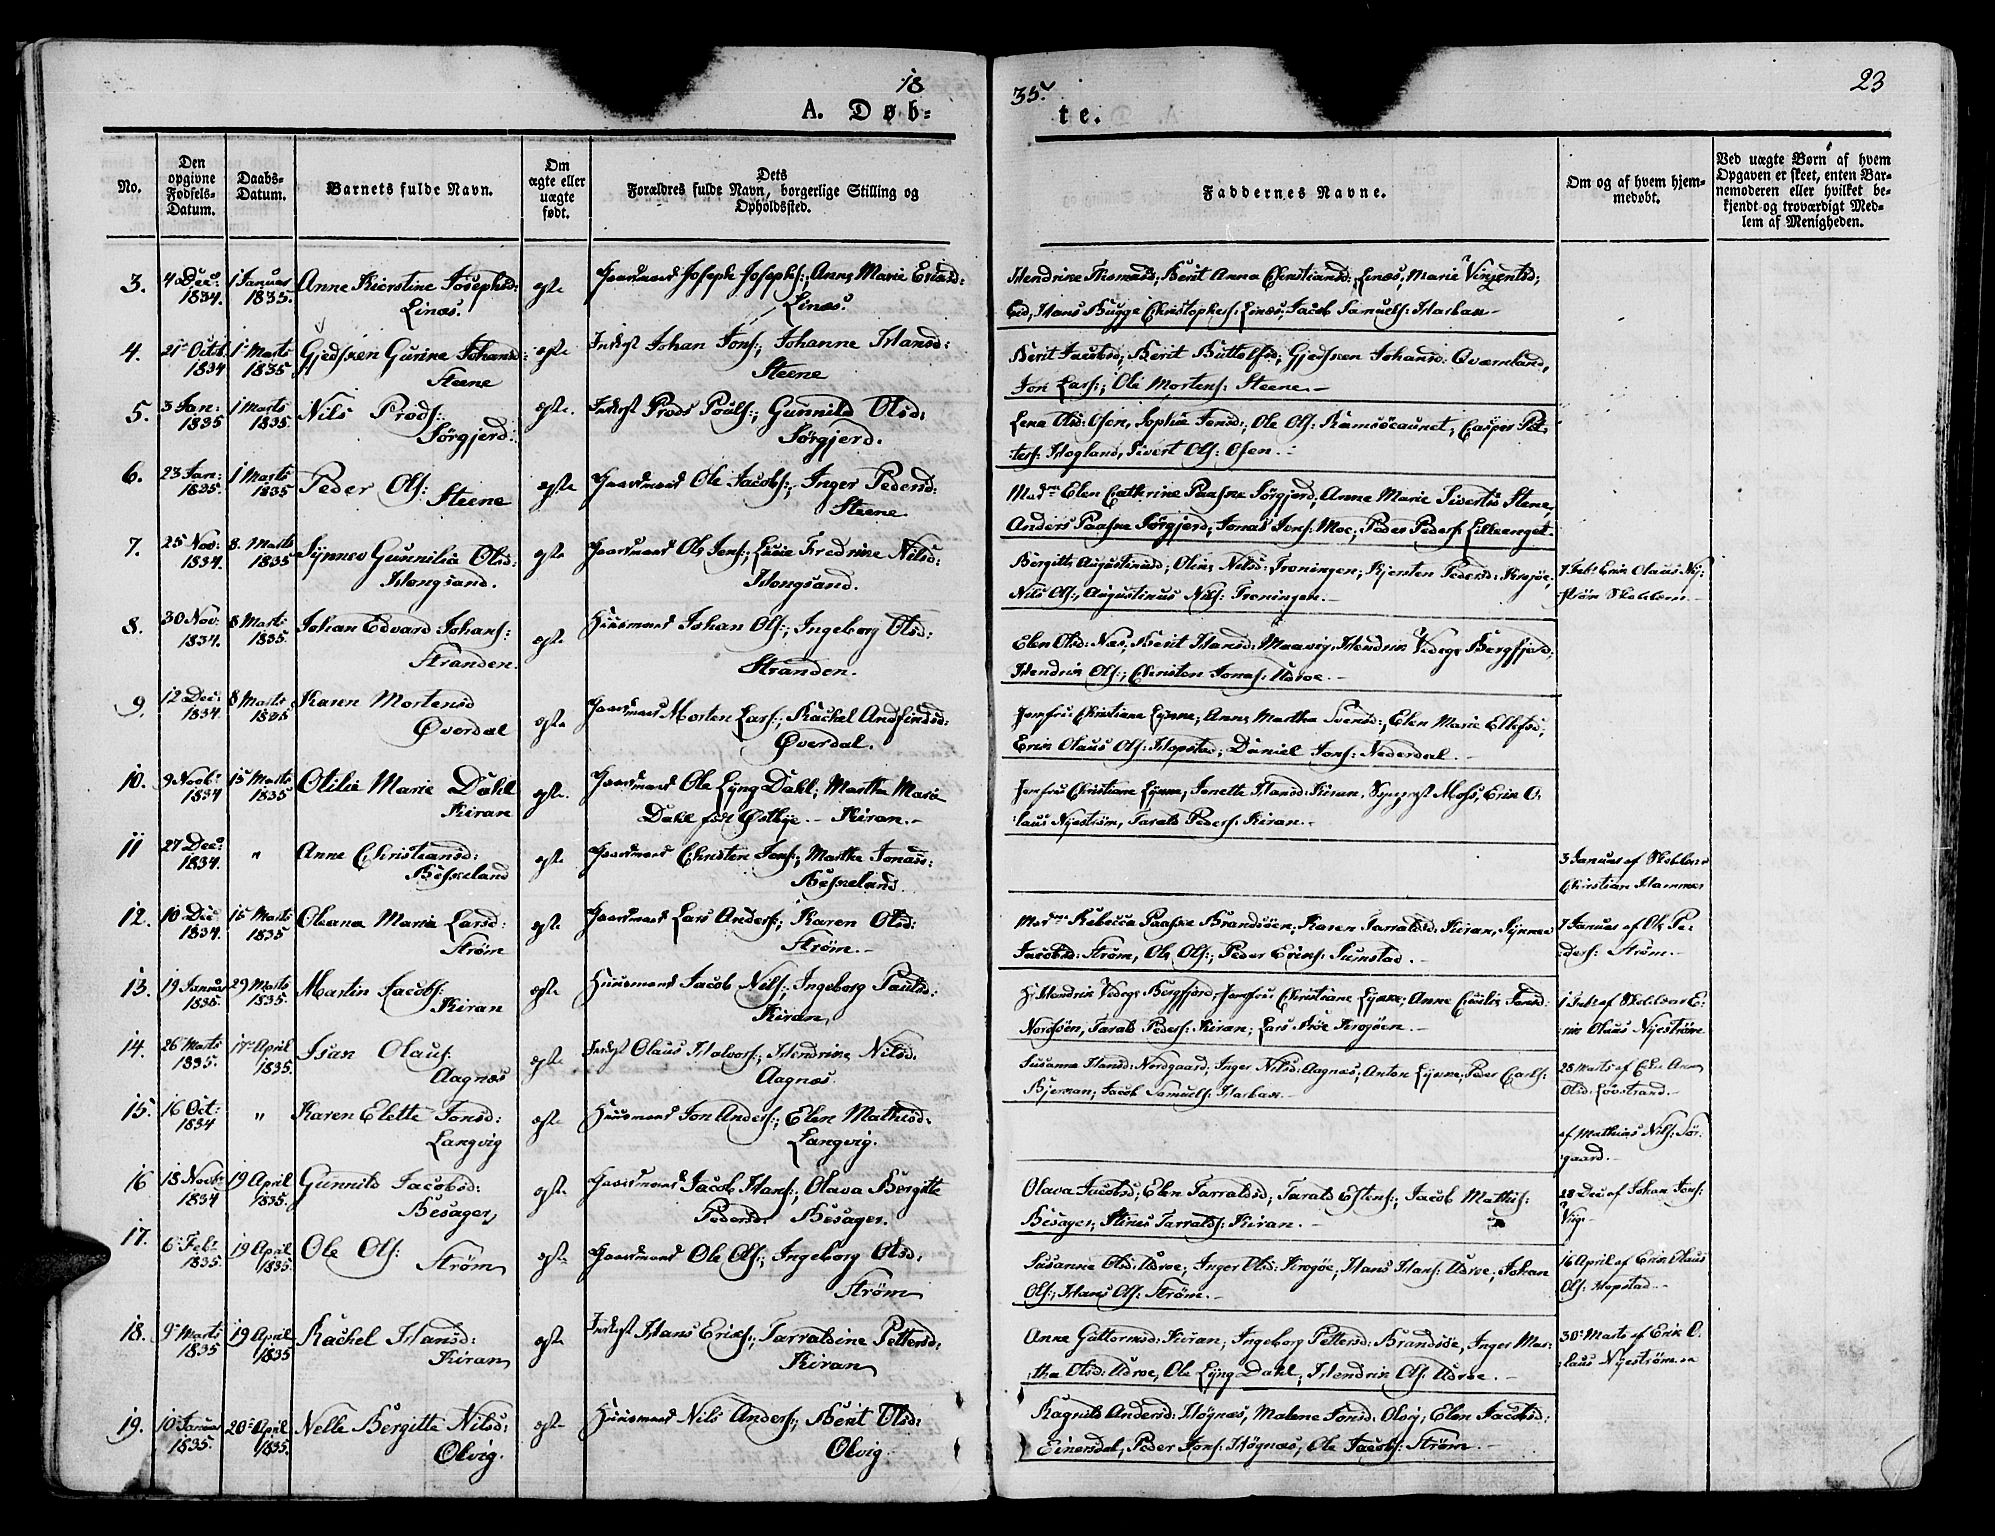 18
35.
23
A. Døb=
te.
No.
Den opgivne Fødsels-Datum.
Daabs-Datum.
Barnets fulde Navn.
Om ægte eller uægte født.
Dets Forældres fulde Navn, borgerlige Stilling og Opholdssted.
Faddernes Navne.
Om og af hvem hjemmedøbt.
Ved uægte Børn af hvem Opgaven er skeet, enten Barnemoderen eller hvilket bekjendt og troværdigt Medlem af Menigheden.
3. 4 Dec: 1834. 1 Januar 1835. Anne Kierstine Josephsd: Linæs. egte Gaardmand Joseph Josephs:, Anne Marie Ericsd: Linæs.
Hendrine Thomasd; Berit Anna Christiansd: Linæs, Marie
Hans Bugge Christophers: Linæs, Jacob Samuels: Harbak
4. 21 Octob 1834 1 Marts 1835 Gjedsken Gurine Johansd: Steene egte Inderst Johan Jons:, Johanne Hansd: Steene
Berit Jacobsd; Berit Buttolfsd; Gjedsken Johansd: Qværnland,
Jon Lars:; Ole Mortens: Steene
5. 3 Jan: 1835 1 Marts 1835. Nils Prods: Sørgjerd: egte. Inderst Prods Pouls:, Gunnild Olsd: Sørgjerd.
Lena Olsd: Osen, Sophia Jonsd:, Ole Ols: Ramsøeaunet, Casper Pet-
ters: Hogland, Sivert Ols: Osen.
6. 23 Jan: 1835. 1 Marts 1835 Peder Ols: Steene egte Gaardmand Ole Jacobs:, Inger Pedersd: Steene
Madm Elen Cathrine Paaske Sørgjerd, Anne Marie Sivertsd Steene,
Anders Paaske Sørgjerd, Jonas Jons: Moe, Peder Peders: Lilleenget.
7. 25 Nov: 1834. 8. Marts 1835 Synnev Gunnilia Olsd: Hongsand. egte Gaardmand Ole Jens:, Lucie Fredrine Nilsd: Hongsand.
Bergitte Augustinusd; Oline Nilsd: Troningen, Kjersten Pedersd: Krogøe,
Nils Ols:, Augustinus Nils: Troningen.
7 Feb: Erik Olaus Ny-
strøm Skoleholder
8. 30 Nov: 1834. 8 Marts: 1835. Johan Edvard Johans: Stranden. egte Huusmand Johan Ols:, Ingeborg Olsd: Stranden.
Elen Olsd: Næs, Berit Hansd: Maavig, Hendrik Vedege Bergfjerd,
Hendrik Ols:, Christen Jonas: Udroe.
9. 12 Dec: 1834. 8 Marts 1835 Karen Mortensd Øverdal egte Gaardmand Morten Lars:, Rachel Andfindsd: Øverdal.
Jomfru Christiane Lynne, Anne Martha Svensd:, Elen Marie Ellefsd,
Erik Olaus Ols: Hopstad, Daniel Jons: Nederdal.
10. 9 Novbr 1834 15 Marts 1835 Otilie Marie Dahl Kiran egte. Gaardmand Ole Lyng Dahl, Martha Maria
Dahl født Østbye. Kiran.
Jomfru Christiane Lynne, Jonette Hansd: Kiran, Moss, Erik O-
laus Nyestrøm, Tarald Peders: Kiran.
11 27 Dec: 1834. " Anne Christensd: Beskeland egte Gaardmand Christen Jons:, Martha Jonasd: Beskeland
3 Januar af Skoleholder
Christian Hammer
12. 10 Dec 1834. 15 Marts 1835 Oleana Maria Larsd: Strøm egte Gaardmand Lars Anders:, Karen Olsd: Strøm.
Madme Rebecca Paaske Brandsøen, Karen Tarraldsd: Kiran, Synnev
Jacobsd: Strøm, Ole Ols:, Peder Eriks: Sumstad.
7 Januar af Ole Pe-
ders: Strøm.
13. 19 Januar 1835. 29 Marts 1835. Martin Jacobs: Kiran egte Huusmand Jacob Nils:, Ingeborg Paulsd: Kiran
Hr Hendrik Vedege Bergfjerd, Jomfru Christiane Lynne, Anne Cecilia Jonsd:
Nordsøen, Tarald Peders: Kiran, Lars Krogøen.
1 Feb: af Skoleholder E-
rik Olaus Nyestrøm
14. 26 Marts 1835. 17 April 1835. Isan Olaus: Aagnæs egte Inderst Olaus Halvors:, Hendrine Nilsd: Aagnæs.
Susanna Hansd: Nordgaard, Inger Nilsd: Aagnæs, Anton Lynne, Peder Carls:
Bjerkan, Jacob Samuels: Harbak
28 Marts af Elen Anna
Olsd: Løvstrand.
15. 16 Oct: 1834 " Karen Elette Jonsd: Langvig egte Huusmand Jon Anders:, Elen Mathisd: Langvig.
af Mathias Nils: Sør-
gaard.
16 18 Novbr 1834 19 April 1835. Gunnild Jacobsd: Besager, egte. Gaardmand Jacob Hans:, Olava Bergitte
Pedersd: Besager.
Olava Jacobsd; Elen Tarraldsd; Tarald Estens:, Jacob Mathis:
Besager, Stines Tarralds: Kiran.
28 Dec af Johan Jons:
Viig.
17. 6 Feb: 1835. 19 April 1835. Ole Ols: Strøm egte Gaardmand Ole Ols:, Ingeborg Olsd: Strøm
Susanne Olsd: Udroe, Inger Olsd: Krogøe, Hans Hans: Udroe, Johan
Ols:, Hans Ols: Strøm.
16 April af Erik Olaus
Ols: Hopstad.
18. 9 Marts 1835 19 April 1835 Rachel Hansd: Kiran egte Inderst Hans Erics:, Tarraldine Pettersd: Kiran
Anne Guttormsd: Kiran, Ingeborg Pettersd: Brandsøe, Inger Mar-
tha Olsd: Udroe, Ole Lyng Dahl, Hendrik Ols: Udroe.
30 Marts af Erik O-
laus Nyestrøm
19. 10 Januar 1835. 20 April 1835. Nelle Bergitte Nilsd: Olvig. egte Huusmand Nils Anders:, Berit Olsd: Olvig
Ragnild Andersd: Høgnæs, Malene Jonsd: Olvig, Elen Jacobsd:
Einersdal, Peder Jons: Høgnæs, Ole Jacobs: Strøm.